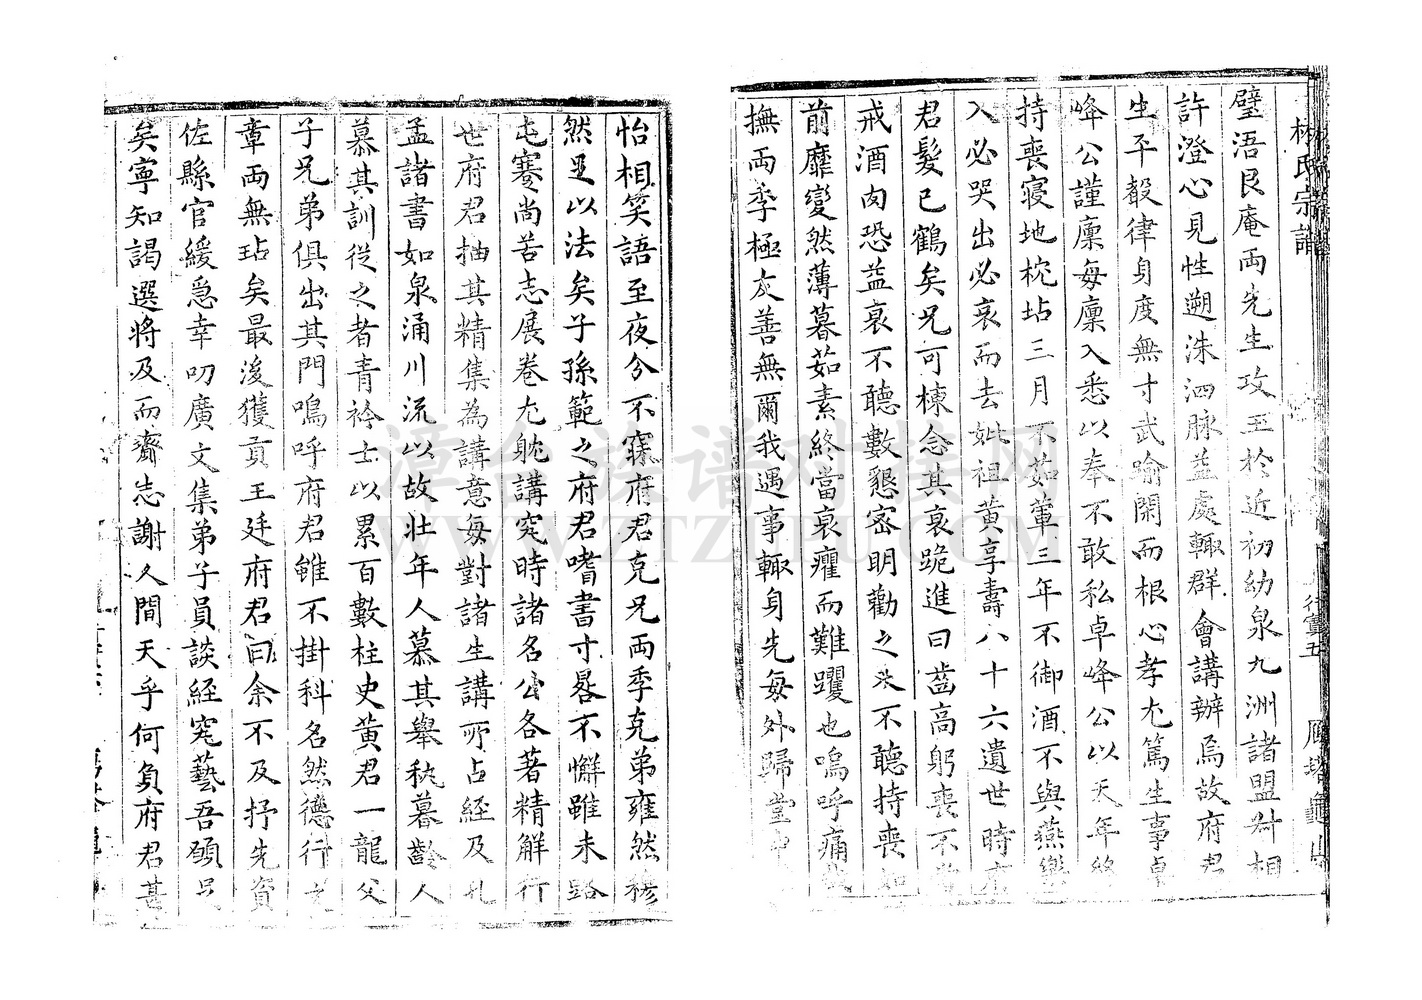 林氏宗譜
行實五
璧浯艮庵兩先生攻玉於近初幼泉九洲諸盟叔相
許澄心見性遡洙泗脉益處輒群會講辦焉故府君
生平縠律身度無寸武踰閑而根心孝尤篤生事卓
峰公謹廩每廩入悉以奉不敢私卓峰公以天年終
持喪寝地枕坫三月不茹葷三年不御酒不與燕樂
入必哭出必哀而去妣祖黄享壽八十六遺世時府
君髮已鶴矣兄可棟念其哀跪進曰齒高躬喪不
戒酒肉恐益哀不聽數懇宻明勸之又不聽持喪如
前靡變然薄暮茹素終當哀癯而難躩也嗚呼痛哉
撫兩季極友善無爾我遇事輒身先每外歸堂中
怡相笑語至夜分不寐府君克兄兩季克弟雍然穆
然足以法矣子孫範之府君嗜書寸晷不懈雖未路
屯蹇尚苦志展卷尤躭講究時諸名公各著精解行
世府君抽其精集為講意每對諸生講所占經及孔
孟諸書如泉涌川流以故壯年人慕其舉秇暮齡人
慕其訓從之者青衿士以累百數柱史黄君一龍父
子兄弟俱出其門嗚呼府君雖不掛科名然德行文
章兩無玷矣最後獲貢王廷府君曰余不及抒先資
佐縣官緩急幸叨廣文集弟子員談經究藝吾願足
矣寧知謁選將及而齎志謝人間天乎何負府君甚
潭台族谱对接网
WWW.ZTZUPU.COM